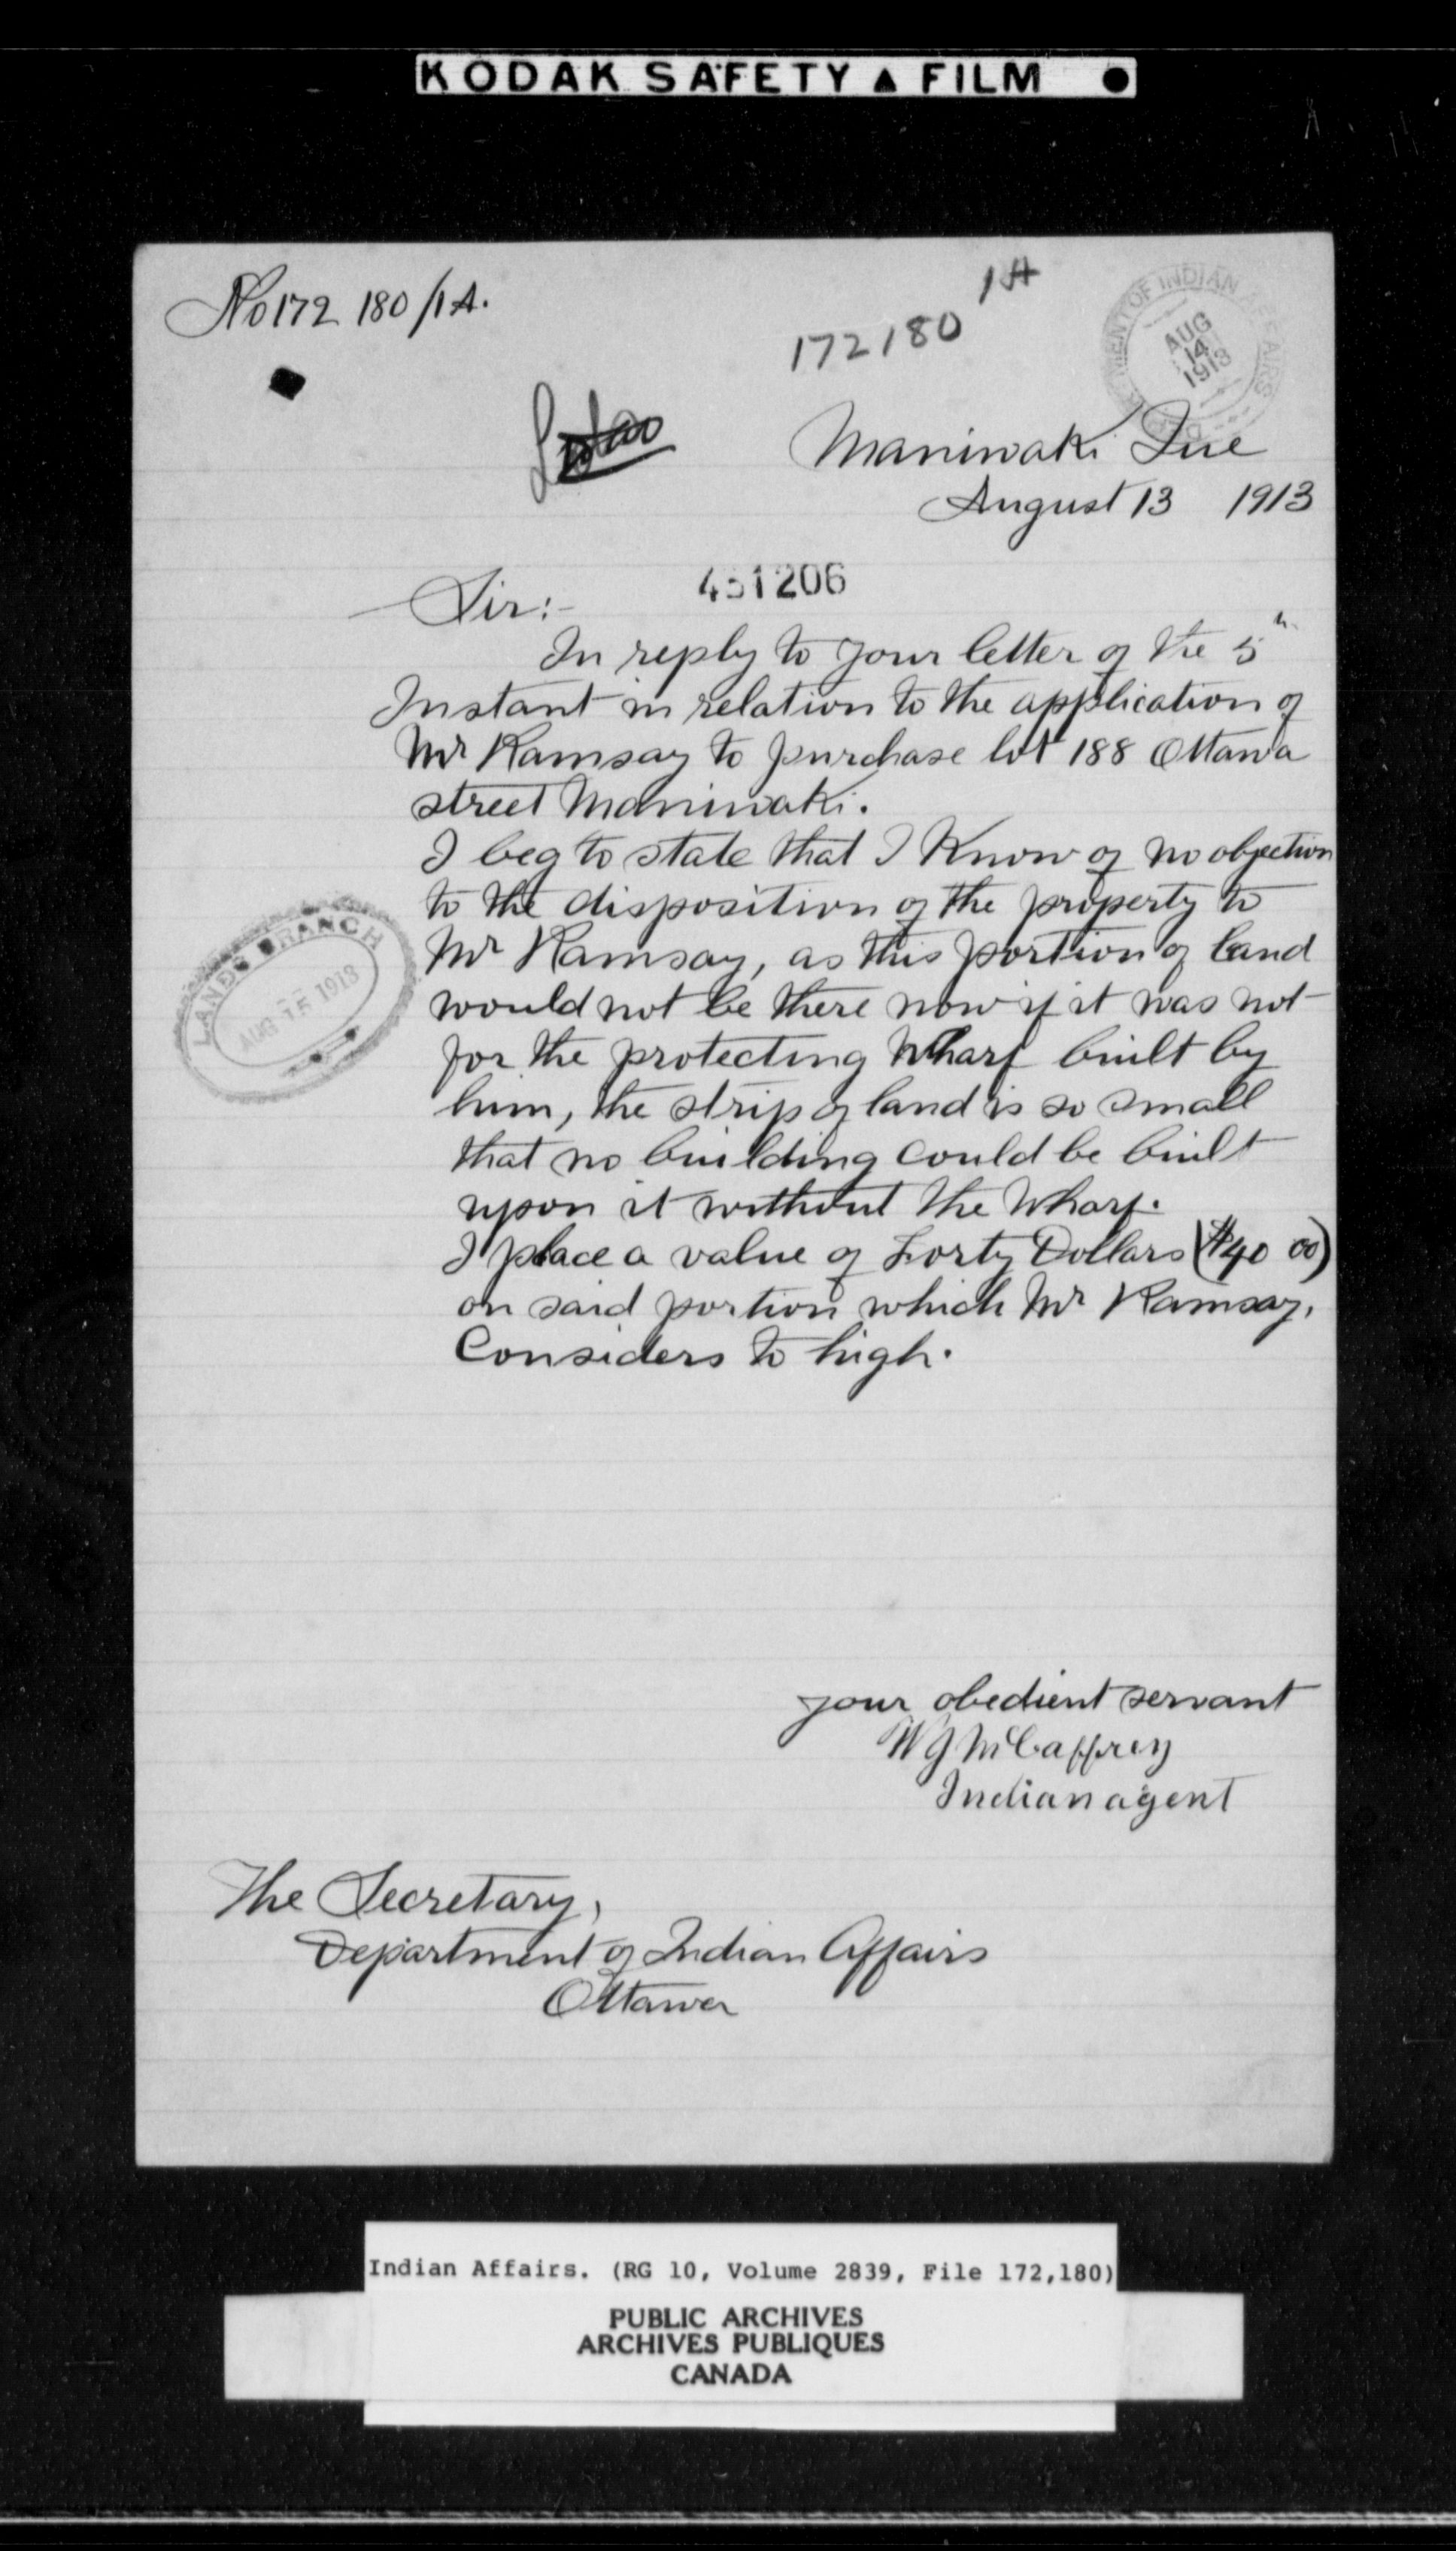 KODAK SAFETY ▲ FILM ●
No 172 180/1A.
1A
172180
DEPARTMENT OF INDIAN AFFAIRS
AUG
14
1913
Maniwaki Que
August 13 1913
451206
Sir:-
In reply to your letter of the 5th
Instant in relation to the application of
Mr Ramsay to purchase lot 188 Ottawa
street Maniwaki.
I beg to state that I Know of no objection
to the disposition of the property to
Mr Ramsay, as this portion of land
would not be there now if it was not
for the protecting Wharf built by
him, the strip of land is so small
that no building could be built
upon it without the Wharf.
I place a value of Forty Dollars ($40 00)
on said portion which Mr Ramsay,
Considers to high.
LANDS BRANCH
AUG 15 1913
your obedient servant
W J McCaffrey
Indian agent
The Secretary,
Department of Indian Affairs
Ottawa
Indian Affairs. (RG 10, Volume 2839, File 172,180)
PUBLIC ARCHIVES
ARCHIVES PUBLIQUES
CANADA